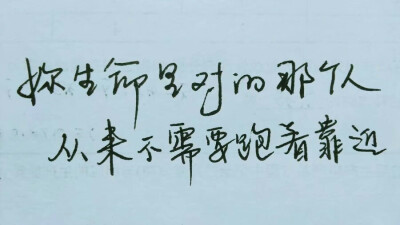 妳生命里对的那个人
从来不需要跑着靠近